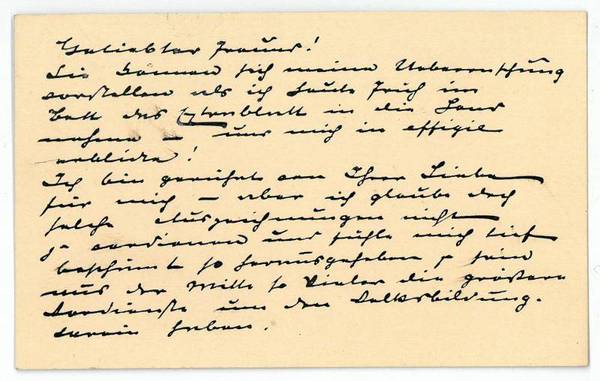 Geliebter Freund!
Sie können sich meine Ueberraschung
vorstellen als ich heute früh im
Bett das Extrablatt in die Hand
nahm — und mich in effigie
erblickte!
Ich bin gerührt von Ihrer Liebe
für mich – aber ich glaube doch
solche Auszeichnungen nicht
zu verdienen und fühle mich tief
beschämt so herausgehoben zu sein
aus der Mitte so Vieler die größere
Verdienste um den Volksbildung-
verein haben.